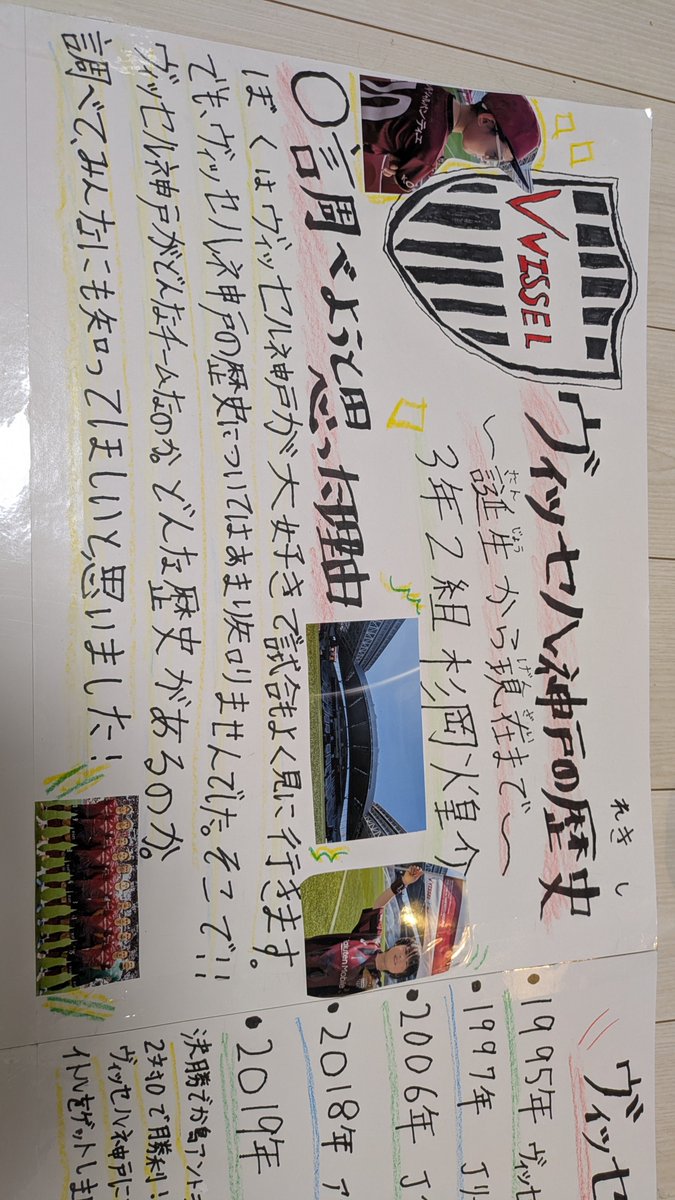 VISSEL
ヴィッセル神戸の歴史
れきし
～誕生から現在まで～
たんじょう
げんざい
3年2組 杉岡煌介
〇調べようと思った理由
ぼくはヴィッセル神戸が大好きで試合もよく見に行きます。
でも、ヴィッセル神戸の歴史についてはあまり知りませんでした。そこで!!
ヴィッセル神戸がどんなチームなのか。どんな歴史があるのか。
調べて、みんなにも知ってほしいと思いました!
Rakuten Mobile
ヴィッセ
・1995年 ヴィッセ
・1997年 Jリ
・2006年 J
・2018年 ア
・2019年
決勝でか島アント
2対0で勝利!
ヴィッセル神戸に
イトルをゲットしま